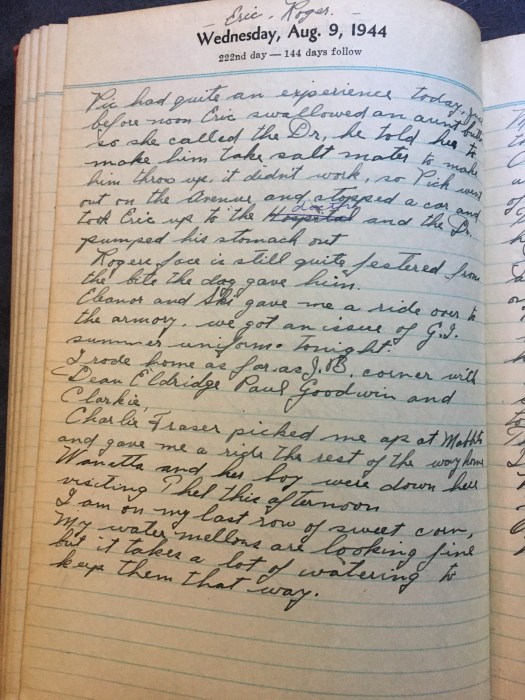 - Eric. Roger. -
Wednesday, Aug. 9, 1944
222nd day — 144 days follow
Pic had quite an experience today, just
before noon Eric swallowed an aunt button
so she called the Dr, he told her to
make him take salt mater to make
him throw up, it didn't work, so Pick went
out on the Avenue and stopped a car and
took Eric up to the Hospital and the Dr.
pumped his stomach out
Rogers face is still quite festered from
the bite the dog gave him.
Eleanor and Ski gave me a ride over to
the armory. we got an issue of G.I.
summer uniforms tonight.
I rode home as far as J.B. corner with
Dean Eldridge Paul Goodwin and
Clarkie,
Charlie Fraser picked me up at
and gave me a ride the rest of the way home
Wanatta and her boy were down here
visiting Thel this afternoon
I am on my last row of sweet corn,
My water mellons are looking fine
but it takes a lot of watering to
keep them that way.